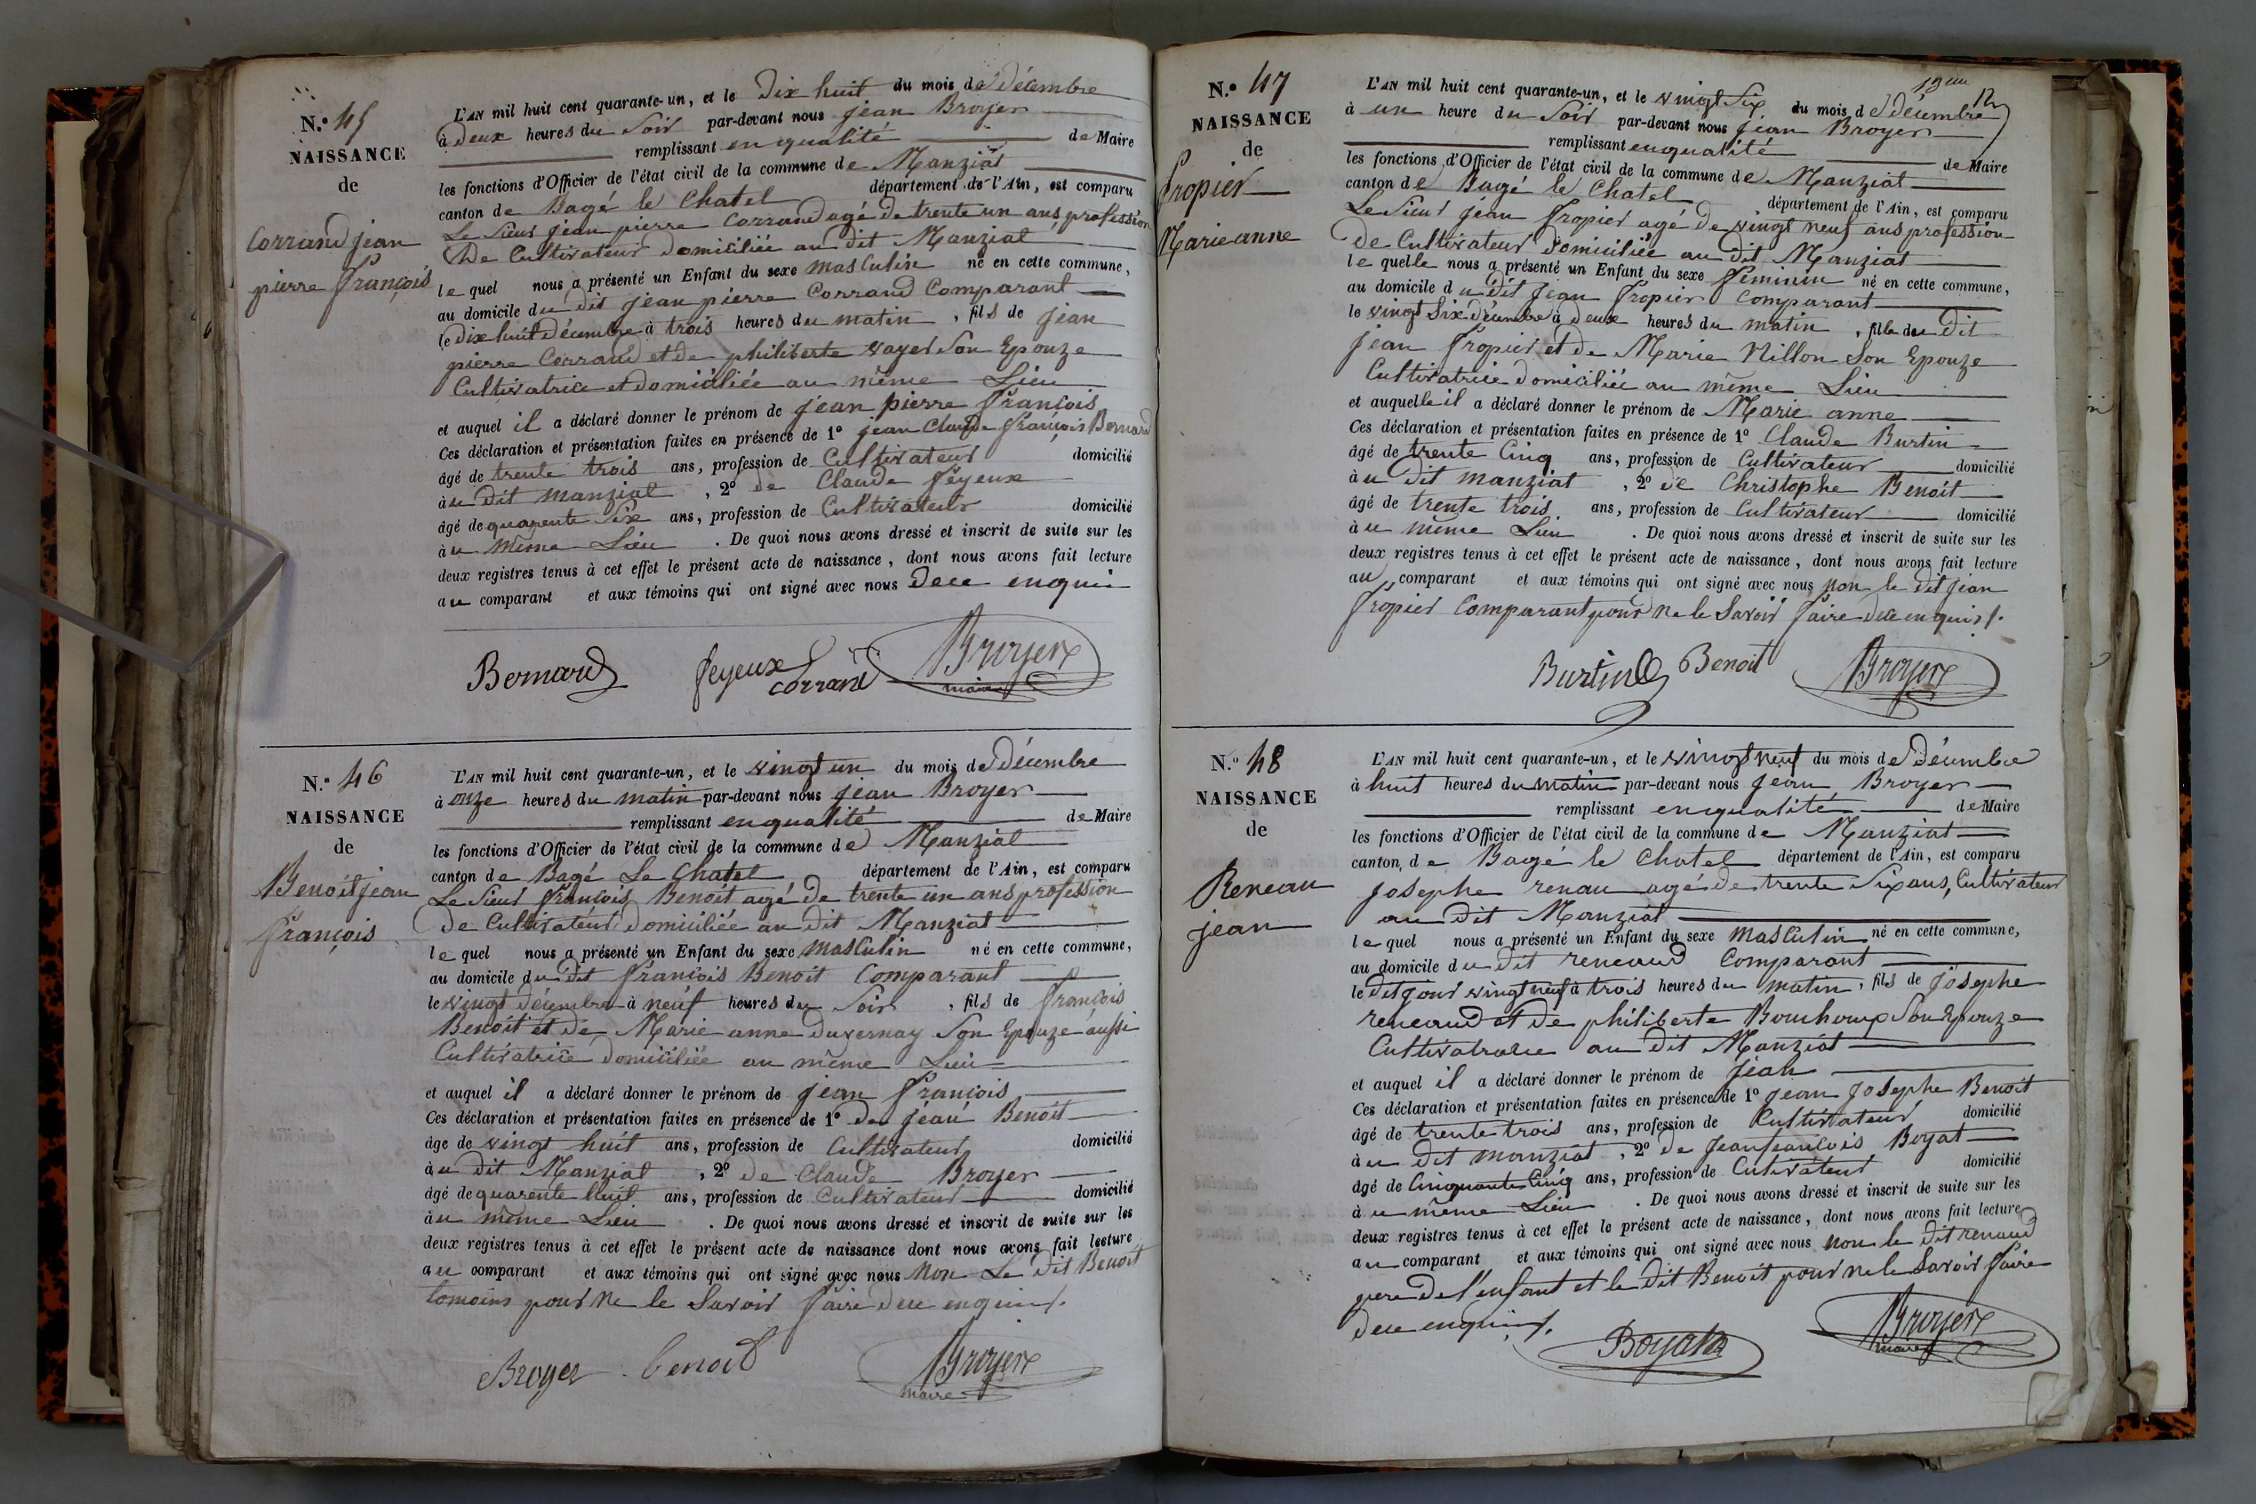 N.° 45
NAISSANCE
de
Corrand jean
pierre françois
L'AN mil huit cent quarante-un, et le Dix huit du mois de décembre
à Deux heures du Soir par-devant nous jean Broyer
remplissant en qualité de Maire
les fonctions d'Officier de l'état civil de la commune de Manziat
canton de Bagé le Chatel département de l'Ain, est comparu
Le Sieur jean pierre Corrand agé de trente un ans profession
De Cultivateur domiciliée au dit Manziat
le quel nous a présenté un Enfant du sexe masculin né en cette commune,
au domicile du dit jean pierre Corrand Comparant
le Dix huit Décembre à trois heures du matin, fils de jean
pierre Corrand et de philiberte vayer Son Epouze
Cultivatrice et domiciliée au même Lieu
et auquel il a déclaré donner le prénom de jean pierre françois
Ces déclaration et présentation faites en présence de 1° jean Claude françois Bernard
âgé de trente trois ans, profession de Cultivateur domicilié
à u dit manziat, 2° de Claude feyeux
âgé de quarente Six ans, profession de Cultivateur domicilié
à u même Lieu. De quoi nous avons dressé et inscrit de suite sur les
deux registres tenus à cet effet le présent acte de naissance, dont nous avons fait lecture
au comparant et aux témoins qui ont signé avec nous Dece enquis
Bernard feyeux Corrand Broyer
maire
N.° 46
NAISSANCE
de
Benoit jean
françois
L'AN mil huit cent quarante-un, et le vingt un du mois de décembre
à onze heures du matin par-devant nous jean Broyer
remplissant en qualité de Maire
les fonctions d'Officier de l'état civil de la commune de Manziat
canton de Bagé Le Chatel département de l'Ain, est comparu
Le Sieur françois Benoit agé de trente un ans profession
De Cultivateur domiciliée au dit Manziat
le quel nous a présenté un Enfant du sexe masculin né en cette commune,
au domicile du dit françois Benoit Comparant
le vingt décembre à neuf heures du Soir, fils de françois
Benoit et de Marie anne duvernay Son Epouze aussi
Cultivatrice domiciliée au même Lieu
et auquel il a déclaré donner le prénom de jean françois
Ces déclaration et présentation faites en présence de 1° de jean Benoit
âgé de vingt huit ans, profession de Cultivateur domicilié
à u dit Manziat, 2° de Claude Broyer
âgé de quarente huit ans, profession de Cultivateur domicilié
à u même Lieu. De quoi nous avons dressé et inscrit de suite sur les
deux registres tenus à cet effet le présent acte de naissance dont nous avons fait lecture
au comparant et aux témoins qui ont signé avec nous Non Le dit Benoit
tomoins pour ne le Savoir faire dece enquis
Broyer benoit Broyer
maire
N.° 47
NAISSANCE
de
fropier
Marie anne
L'AN mil huit cent quarante-un, et le vingt Six du mois de décembre
à un heure du Soir par-devant nous jean Broyer
remplissant en qualité de Maire
les fonctions d'Officier de l'état civil de la commune de Manziat
canton de Bagé le Chatel département de l'Ain, est comparu
Le Sieur jean fropier agé de vingt neuf ans profession
De Cultivateur domiciliée au dit Manziat
le quelle nous a présenté un Enfant du sexe féminin né en cette commune,
au domicile du dit jean fropier Comparant
le vingt Six décembre à deux heures du matin, fille du dit
jean fropier et de Marie Nillon Son Epouze
Cultivatrice domiciliée au même Lieu
et auquelle il a déclaré donner le prénom de Marie anne
Ces déclaration et présentation faites en présence de 1° Claude Burtin
âgé de trente Cinq ans, profession de Cultivateur domicilié
à u dit manziat, 2° de Christophe Benoit
âgé de trente trois ans, profession de Cultivateur domicilié
à u même Lieu. De quoi nous avons dressé et inscrit de suite sur les
deux registres tenus à cet effet le présent acte de naissance, dont nous avons fait lecture
au comparant et aux témoins qui ont signé avec nous non le dit jean
fropier Comparant pour ne le Savoir faire dece enquis
Burtin Benoit Broyer
N.° 48
NAISSANCE
de
Reneau
jean
L'AN mil huit cent quarante-un, et le vingt neuf du mois de décembre
à huit heures du matin par-devant nous jean Broyer
remplissant en qualité de Maire
les fonctions d'Officier de l'état civil de la commune de Manziat
canton de Bagé le Chatel département de l'Ain, est comparu
josephe renau agé de trente Six ans, Cultivateur
au dit Manziat
le quel nous a présenté un Enfant du sexe masculin né en cette commune,
au domicile du dit renaud Comparant
le dit jour vingt neuf à trois heures du matin, fils de josephe
renaud et de philiberte Bouchoux Son Epouze
Cultivatrice au dit Manziat
et auquel il a déclaré donner le prénom de jean
Ces déclaration et présentation faites en présence de 1° jean josephe Benoit
âgé de trente trois ans, profession de Cultivateur domicilié
à u dit manziat, 2° de jean francois Boyat
âgé de Cinquante Cinq ans, profession de Cultivateur domicilié
à u même Lieu. De quoi nous avons dressé et inscrit de suite sur les
deux registres tenus à cet effet le présent acte de naissance, dont nous avons fait lecture
au comparant et aux témoins qui ont signé avec nous non le dit renaud
pere de l'enfant et le dit Benoit pour ne le Savoir faire
dece enquis
Boyat Broyer
maire